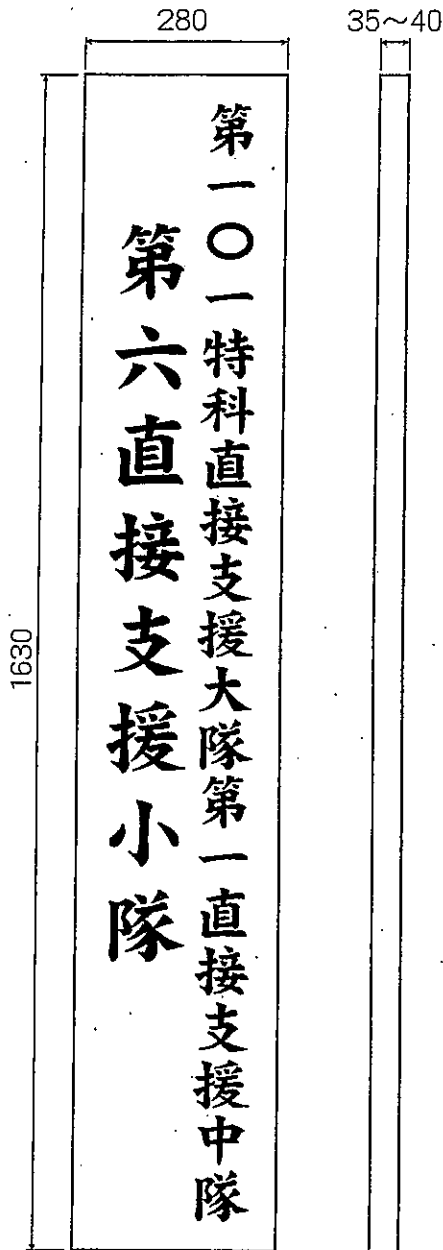 280
35～40
1630
第一〇一特科直接支援大隊第一直接支援中隊
第六直接支援小隊